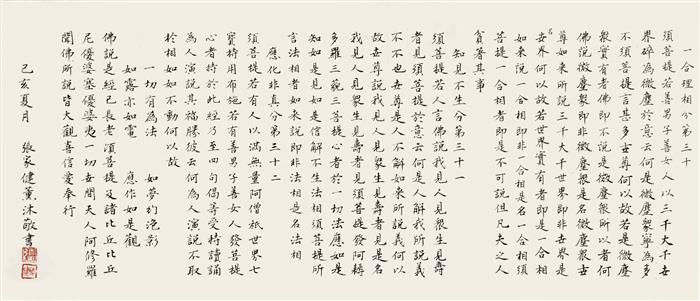 一合理相分第三十
須菩提若善男子善女人以三千大千世
界碎為微塵於意云何是微塵衆寧為多
不須菩提言甚多世尊何以故若是微塵
衆實有者佛即不說是微塵衆所以者何
佛說微塵衆即非微塵衆是名微塵衆世
尊如來所說三千大千世界即非世界是
名世界何以故若世界實有者即是一合相
如來說一合相即非一合相是名一合相須
菩提一合相者即是不可說但凡夫之人
貪著其事
知見不生分第三十一
須菩提若人言佛說我見人見衆生見壽
者見須菩提於意云何是人解我所說義
不不也世尊是人不解如來所說義何以
故世尊說我見人見衆生見壽者見是名
我見人見衆生見壽者見須菩提發阿耨
多羅三藐三菩提心者於一切法應如是
知如是見如是信解不生法相須菩提所
言法相者如來說即非法相是名法相
應化非真分第三十二
須菩提若有人以滿無量阿僧祇世界七
寶持用布施若有善男子善女人發菩提
心者持於此經乃至四句偈等受持讀誦
為人演說其福勝彼云何為人演說不取
於相如如不動何以故
一切有為法 如夢幻泡影
如露亦如電 應作如是觀
佛說是經已長老須菩提及諸比丘比丘
尼優婆塞優婆夷一切世間天人阿修羅
聞佛所說皆大歡喜信受奉行
己亥夏月 張家健薰沐敬書